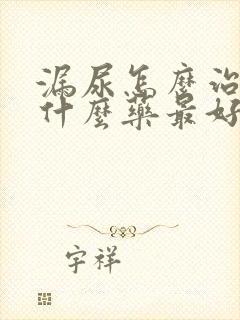 漏尿怎麼治
什麼藥最好
宇祥